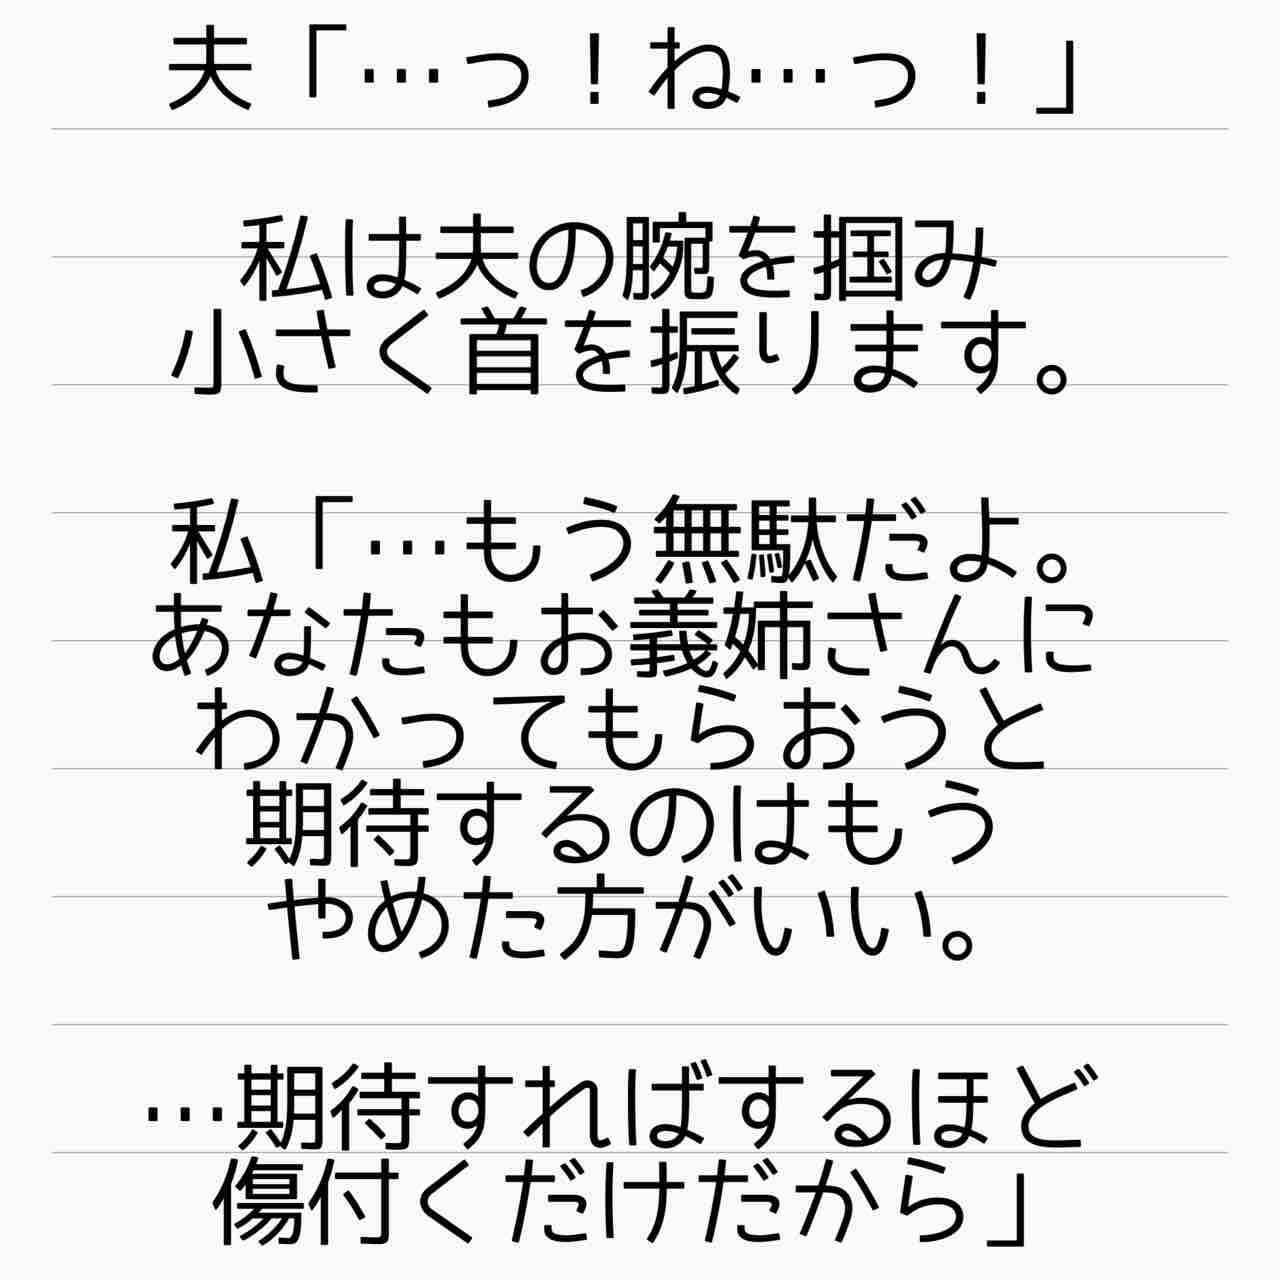 夫「…っ！ね…っ！」
私は夫の腕を掴み
小さく首を振ります。
私「…もう無駄だよ。
あなたもお義姉さんに
わかってもらおうと
期待するのはもう
やめた方がいい。
…期待すればするほど
傷付くだけだから」